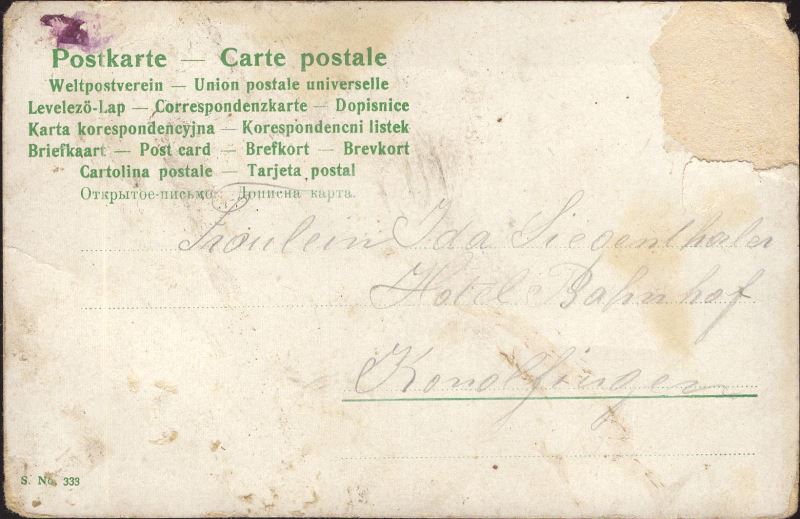 Postkarte — Carte postale
Weltpostverein — Union postale universelle
Levelező-Lap — Correspondenzkarte — Dopisnice
Karta korespondencyjna — Korespondencni listek
Briefkaart — Post card — Brefkort — Brevkort
Cartolina postale — Tarjeta postal
Открытое-письмо Дописна карта.
Fräulein Ida Siegenthaler
Hotel Bahnhof
Konolfingen
S. No. 333